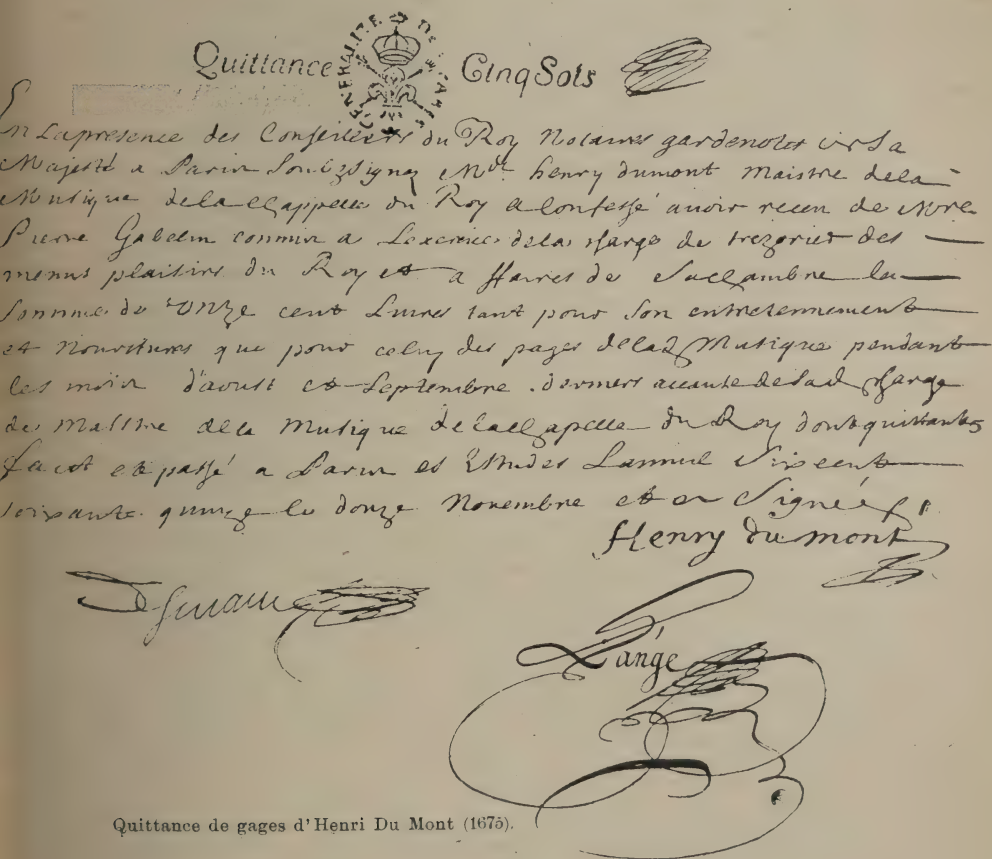 Quittance GENERALITE DE PARIS Cinq Sols
En Lapresence des Conseillers du Roy Notaires gardenotes de Sa
Majesté a Paris Soubzsignez Mre henry dumont maistre dela
Musique dela Chappelle du Roy a Confessé avoir receu de Mre
Pierre Gabelin commis a Lexercice dela charge de trezorier des
menus plaisirs du Roy et affaires de Sa Chambre la
Somme de Onze cent Livres tant pour Son entretennement
et Nouritures que pour celuy des pages delad Musique pendant
les mois d'aoust et Septembre derniers acause de lad charge
de Maistre dela Musique dela Chapelle du Roy dont quittance
faict et passé a Paris es Estudes Lan mil Six cent
soixante quinze le douze Novembre et a Signé
Henry du mont
Lange
Quittance de gages d'Henri Du Mont (1675).